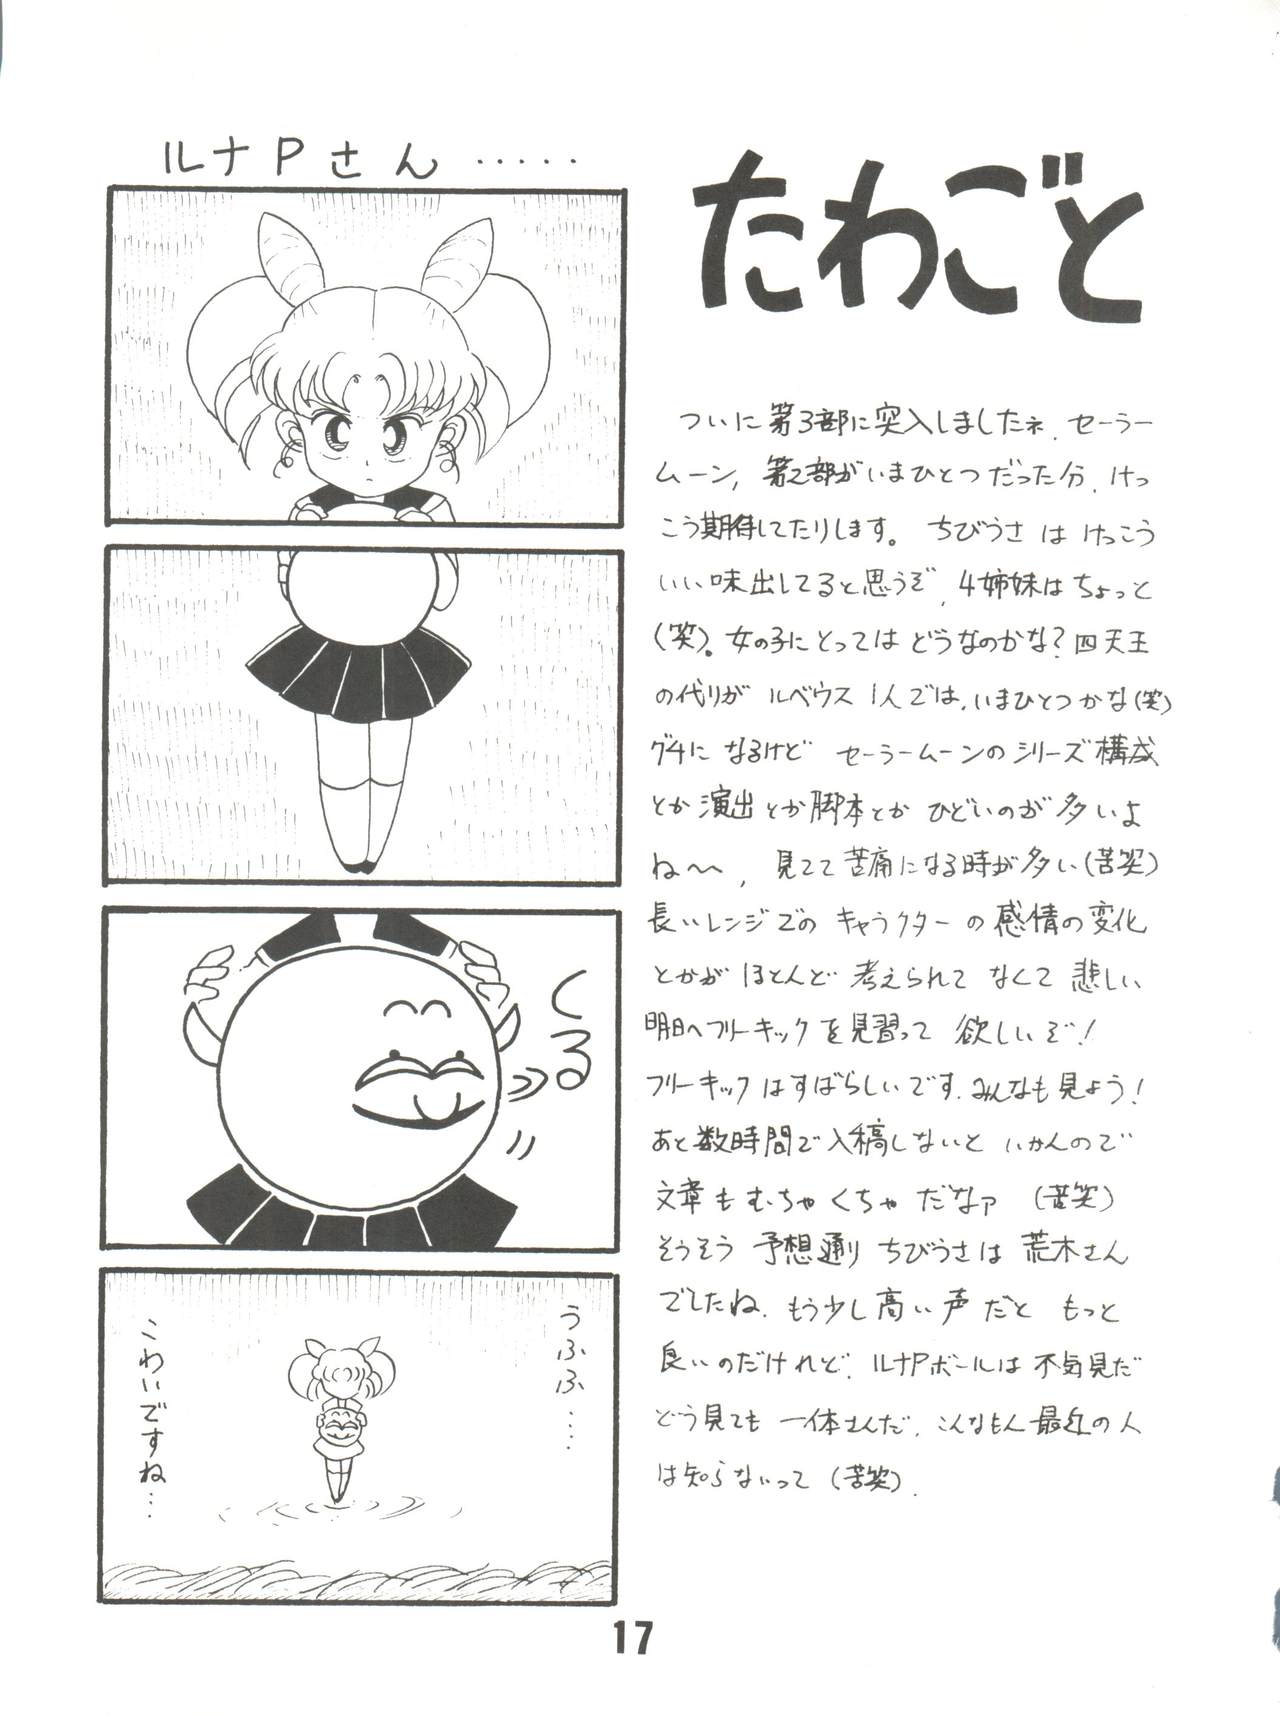 ルナPさん・・・・・
くる
うふふ・・・・
こわいですね・・・
たわごと
ついに第3部に突入しましたネ、セーラー
ムーン、第2部がいまひとつだった分、けっ
こう期待してたりします。ちびうさはけっこう
いい味出してると思うぞ、4姉妹はちょっと
(笑)。女の子にとってはどうなのかな?四天王
の代りがルベウス1人では、いまひとつかな(笑)
グチになるけどセーラームーンのシリーズ構成
とか演出とか脚本とかひどいのが多いよ
ね〜、見てて苦痛になる時が多い(苦笑)
長いレンジでのキャラクターの感情の変化
とかがほとんど考えられてなくて悲しい
明日へフリーキックを見習って欲しいぞ!
フリーキックはすばらしいです、みんなも見よう!
あと数時間で入稿しないといかんので
文章もむちゃくちゃだなァ(苦笑)
そうそう予想通りちびうさは荒木さん
でしたね、もう少し高い声だともっと
良いのだけれど、ルナPボールは不気見だ
どう見ても一体さんだ、こんなもん最近の人
は知らないって(苦笑)。
17